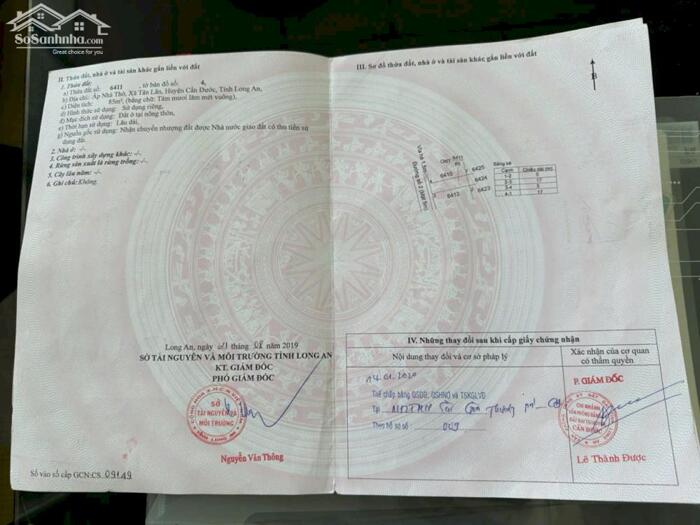 SoSanhnha.com
Great choice for you
II. Thửa đất, nhà ở và tài sản khác gắn liền với đất
1. Thửa đất:
a) Thửa đất số: 6411, tờ bản đồ số: 4,
b) Địa chỉ: Ấp Nhà Thờ, Xã Tân Lân, Huyện Cần Đước, Tỉnh Long An,
c) Diện tích: 85m², (bằng chữ: Tám mươi lăm mét vuông),
d) Hình thức sử dụng: Sử dụng riêng,
đ) Mục đích sử dụng: Đất ở tại nông thôn,
e) Thời hạn sử dụng: Lâu dài,
g) Nguồn gốc sử dụng: Nhận chuyển nhượng đất được Nhà nước giao đất có thu tiền sử
dụng đất.
2. Nhà ở: -/-
3. Công trình xây dựng khác: -/-
4. Rừng sản xuất là rừng trồng: -/-
5. Cây lâu năm: -/-
6. Ghi chú: Không.
Long An, ngày tháng năm 2019
SỞ TÀI NGUYÊN VÀ MÔI TRƯỜNG TỈNH LONG AN
KT. GIÁM ĐỐC
PHÓ GIÁM ĐỐC
SỞ
TÀI NGUYÊN VÀ
MÔI TRƯỜNG
Nguyễn Văn Thông
Số vào sổ cấp GCN:CS 09149
III. Sơ đồ thửa đất, nhà ở và tài sản khác gắn liền với đất
B
6410
6425
6424
6412
6423
Cạnh
1-2 5
2-3 17
3-4 5
4-1 17
IV. Những thay đổi sau khi cấp giấy chứng nhận
Nội dung thay đổi và cơ sở pháp lý
Xác nhận của cơ quan
có thẩm quyền
14.01.2020
Thế chấp bằng QSDĐ, QSHNO và TSKGLVĐ
Tại
Theo hồ sơ số 009
P. GIÁM ĐỐC
CHI NHÁNH
CẦN ĐƯỚC
Lê Thành Được